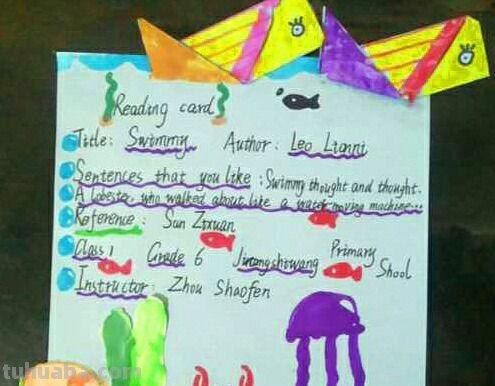 Reading card
Title: Swimmy Author: Leo Lionni
Sentences that you like: Swimmy thought and thought.
A lobster, who walked about like a water moving machine...
Reference: Sun Zixuan
Class 1 Grade 6 Jintangshiwang Primary Shool
Instructor: Zhou Shaofen
tuhuaba.com